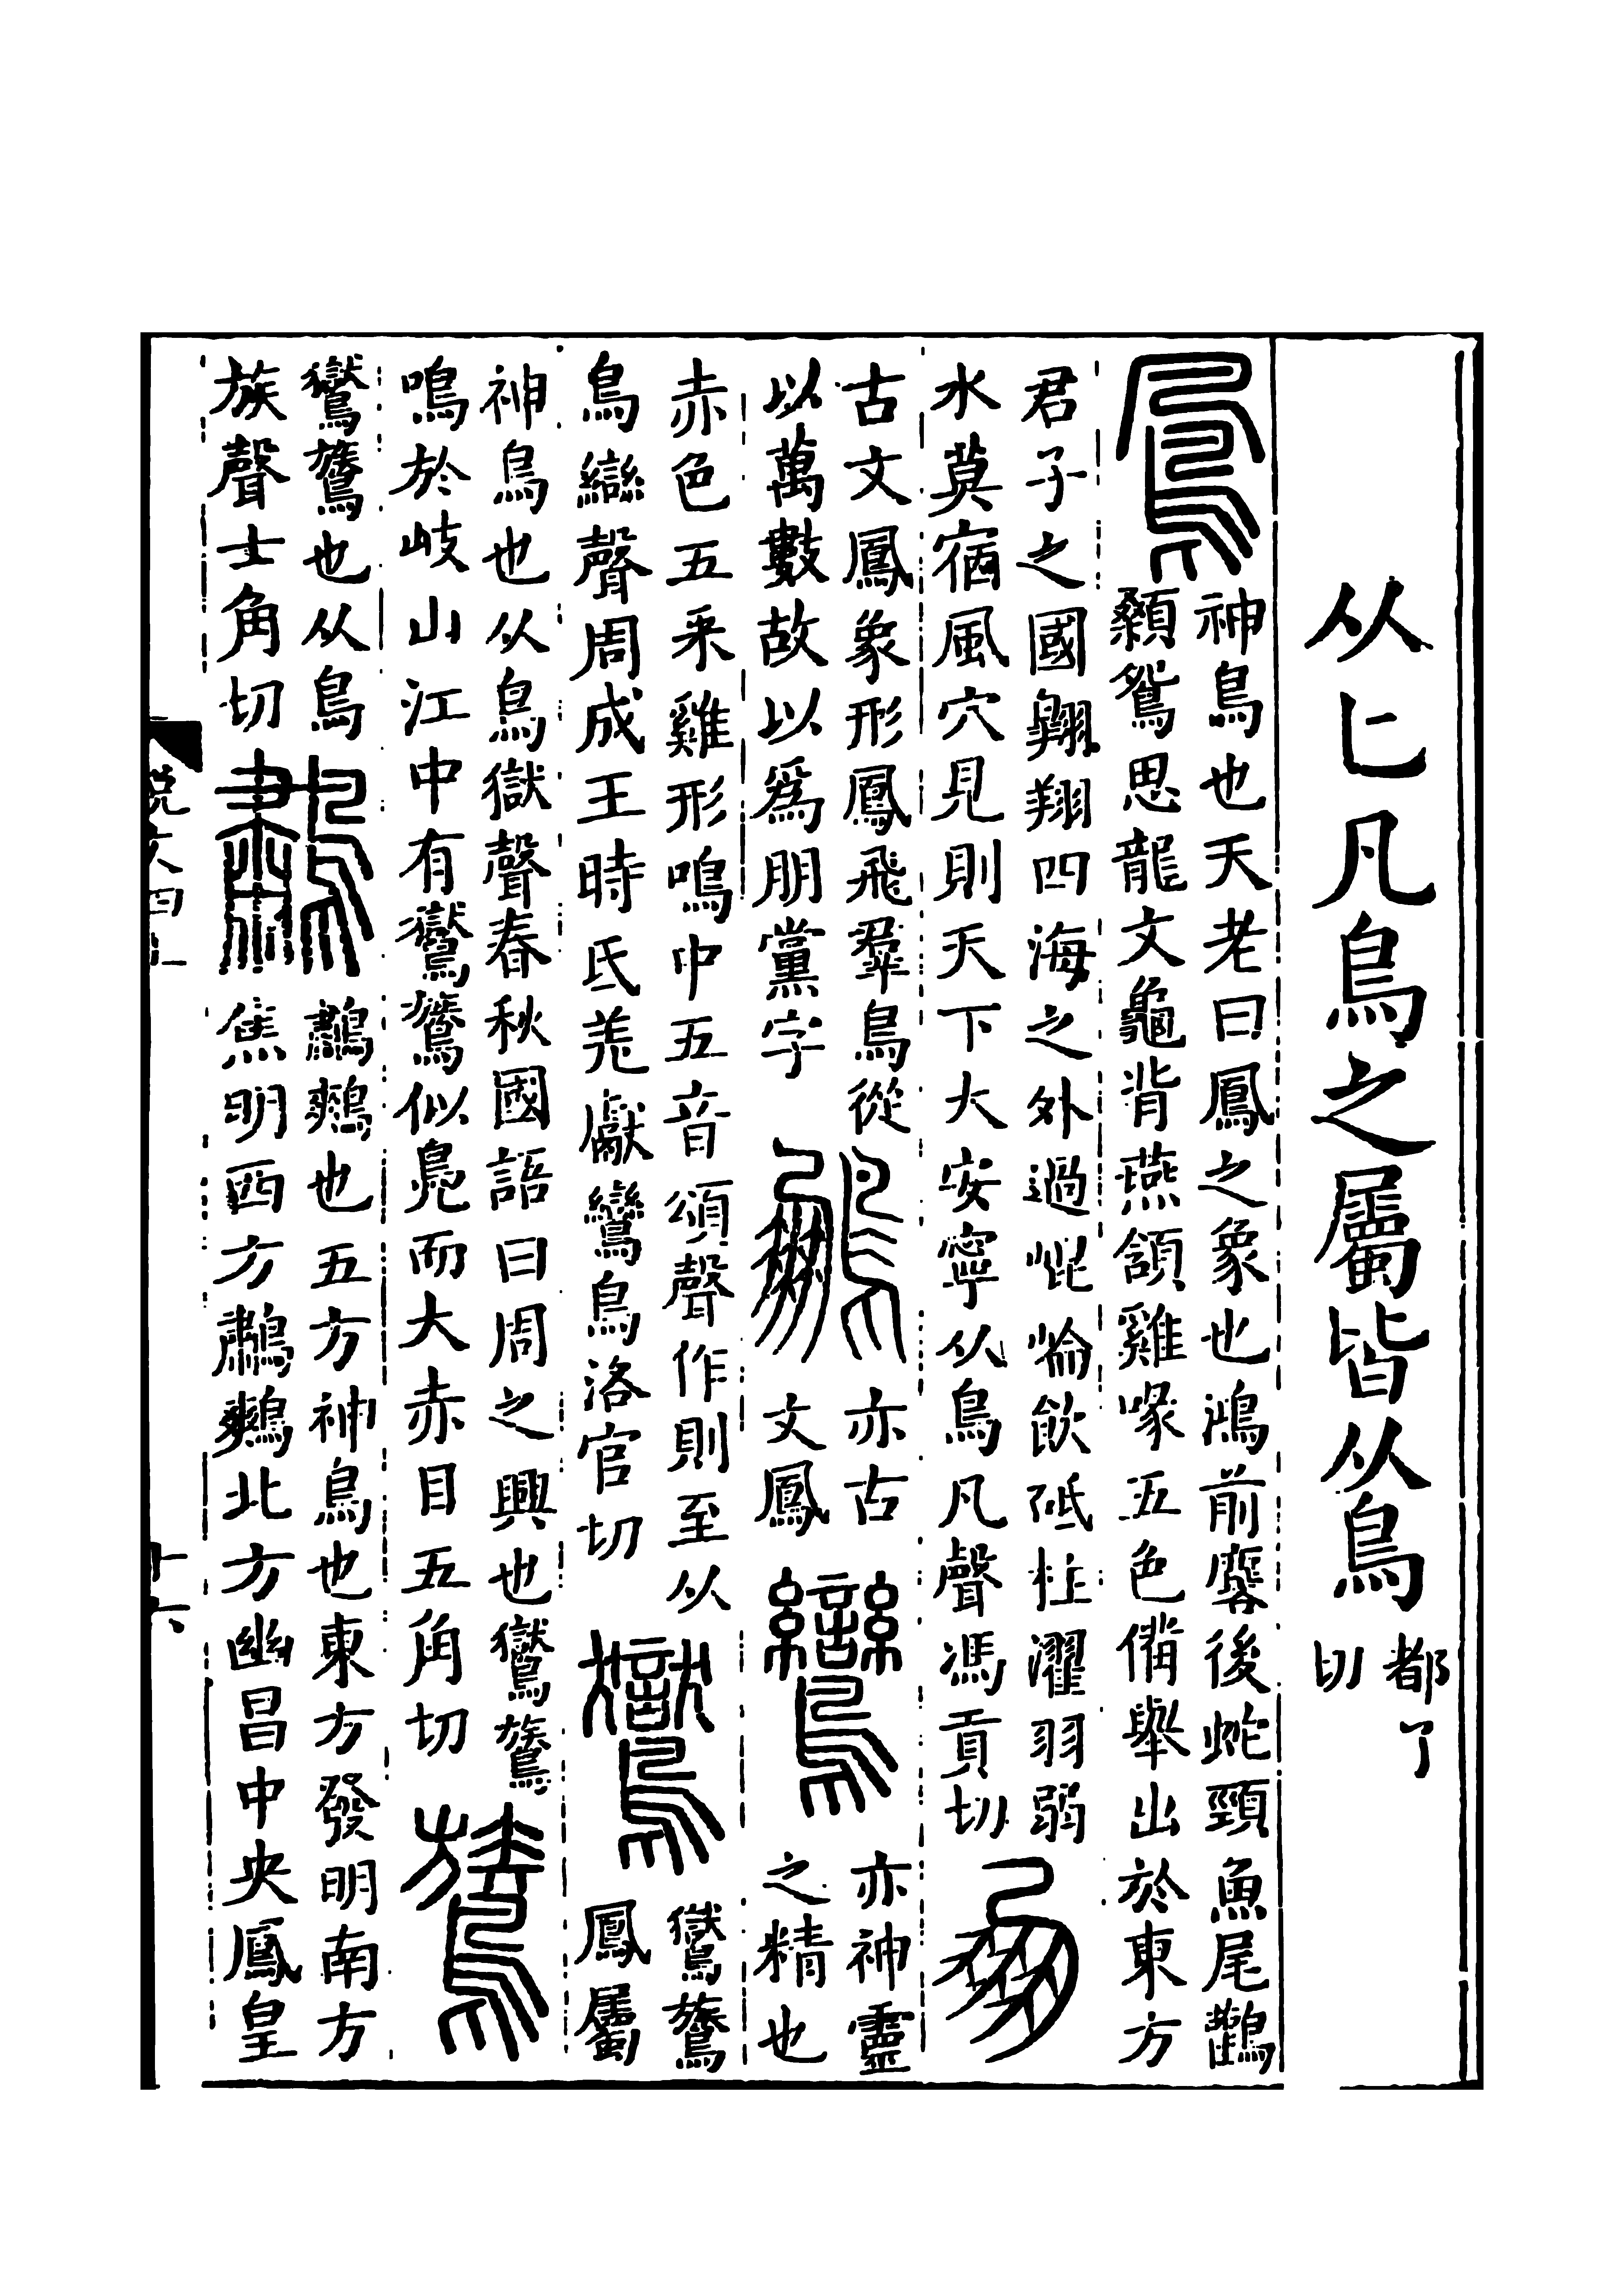 从匕凡鳥之屬皆从鳥
都了
切
鳳
神鳥也天老曰鳳之象也鴻前麐後蛇頸魚尾鸛
顙鴛思龍文龜背燕頷雞喙五色備舉出於東方
君子之國翺翔四海之外過崐崘飲砥柱濯羽弱
水莫宿風穴見則天下大安寧从鳥凡聲馮貢切
朋
古文鳳象形鳳飛羣鳥從
以萬數故以爲朋黨字
鵬
亦古
文鳳
鸞
亦神靈
之精也
赤色五采雞形鳴中五音頌聲作則至从
鳥䜌聲周成王時氐羌獻鸞鳥洛官切
鸑
鸑鷟
鳳屬
神鳥也从鳥獄聲春秋國語曰周之興也鸑鷟
鳴於岐山江中有鸑鷟似鳧而大赤目五角切
鷟
鸑鷟也从鳥
族聲士角切
鷫
鷫鷞也五方神鳥也東方發明南方
焦明西方鷫鷞北方幽昌中央鳳皇
説文四上
十六